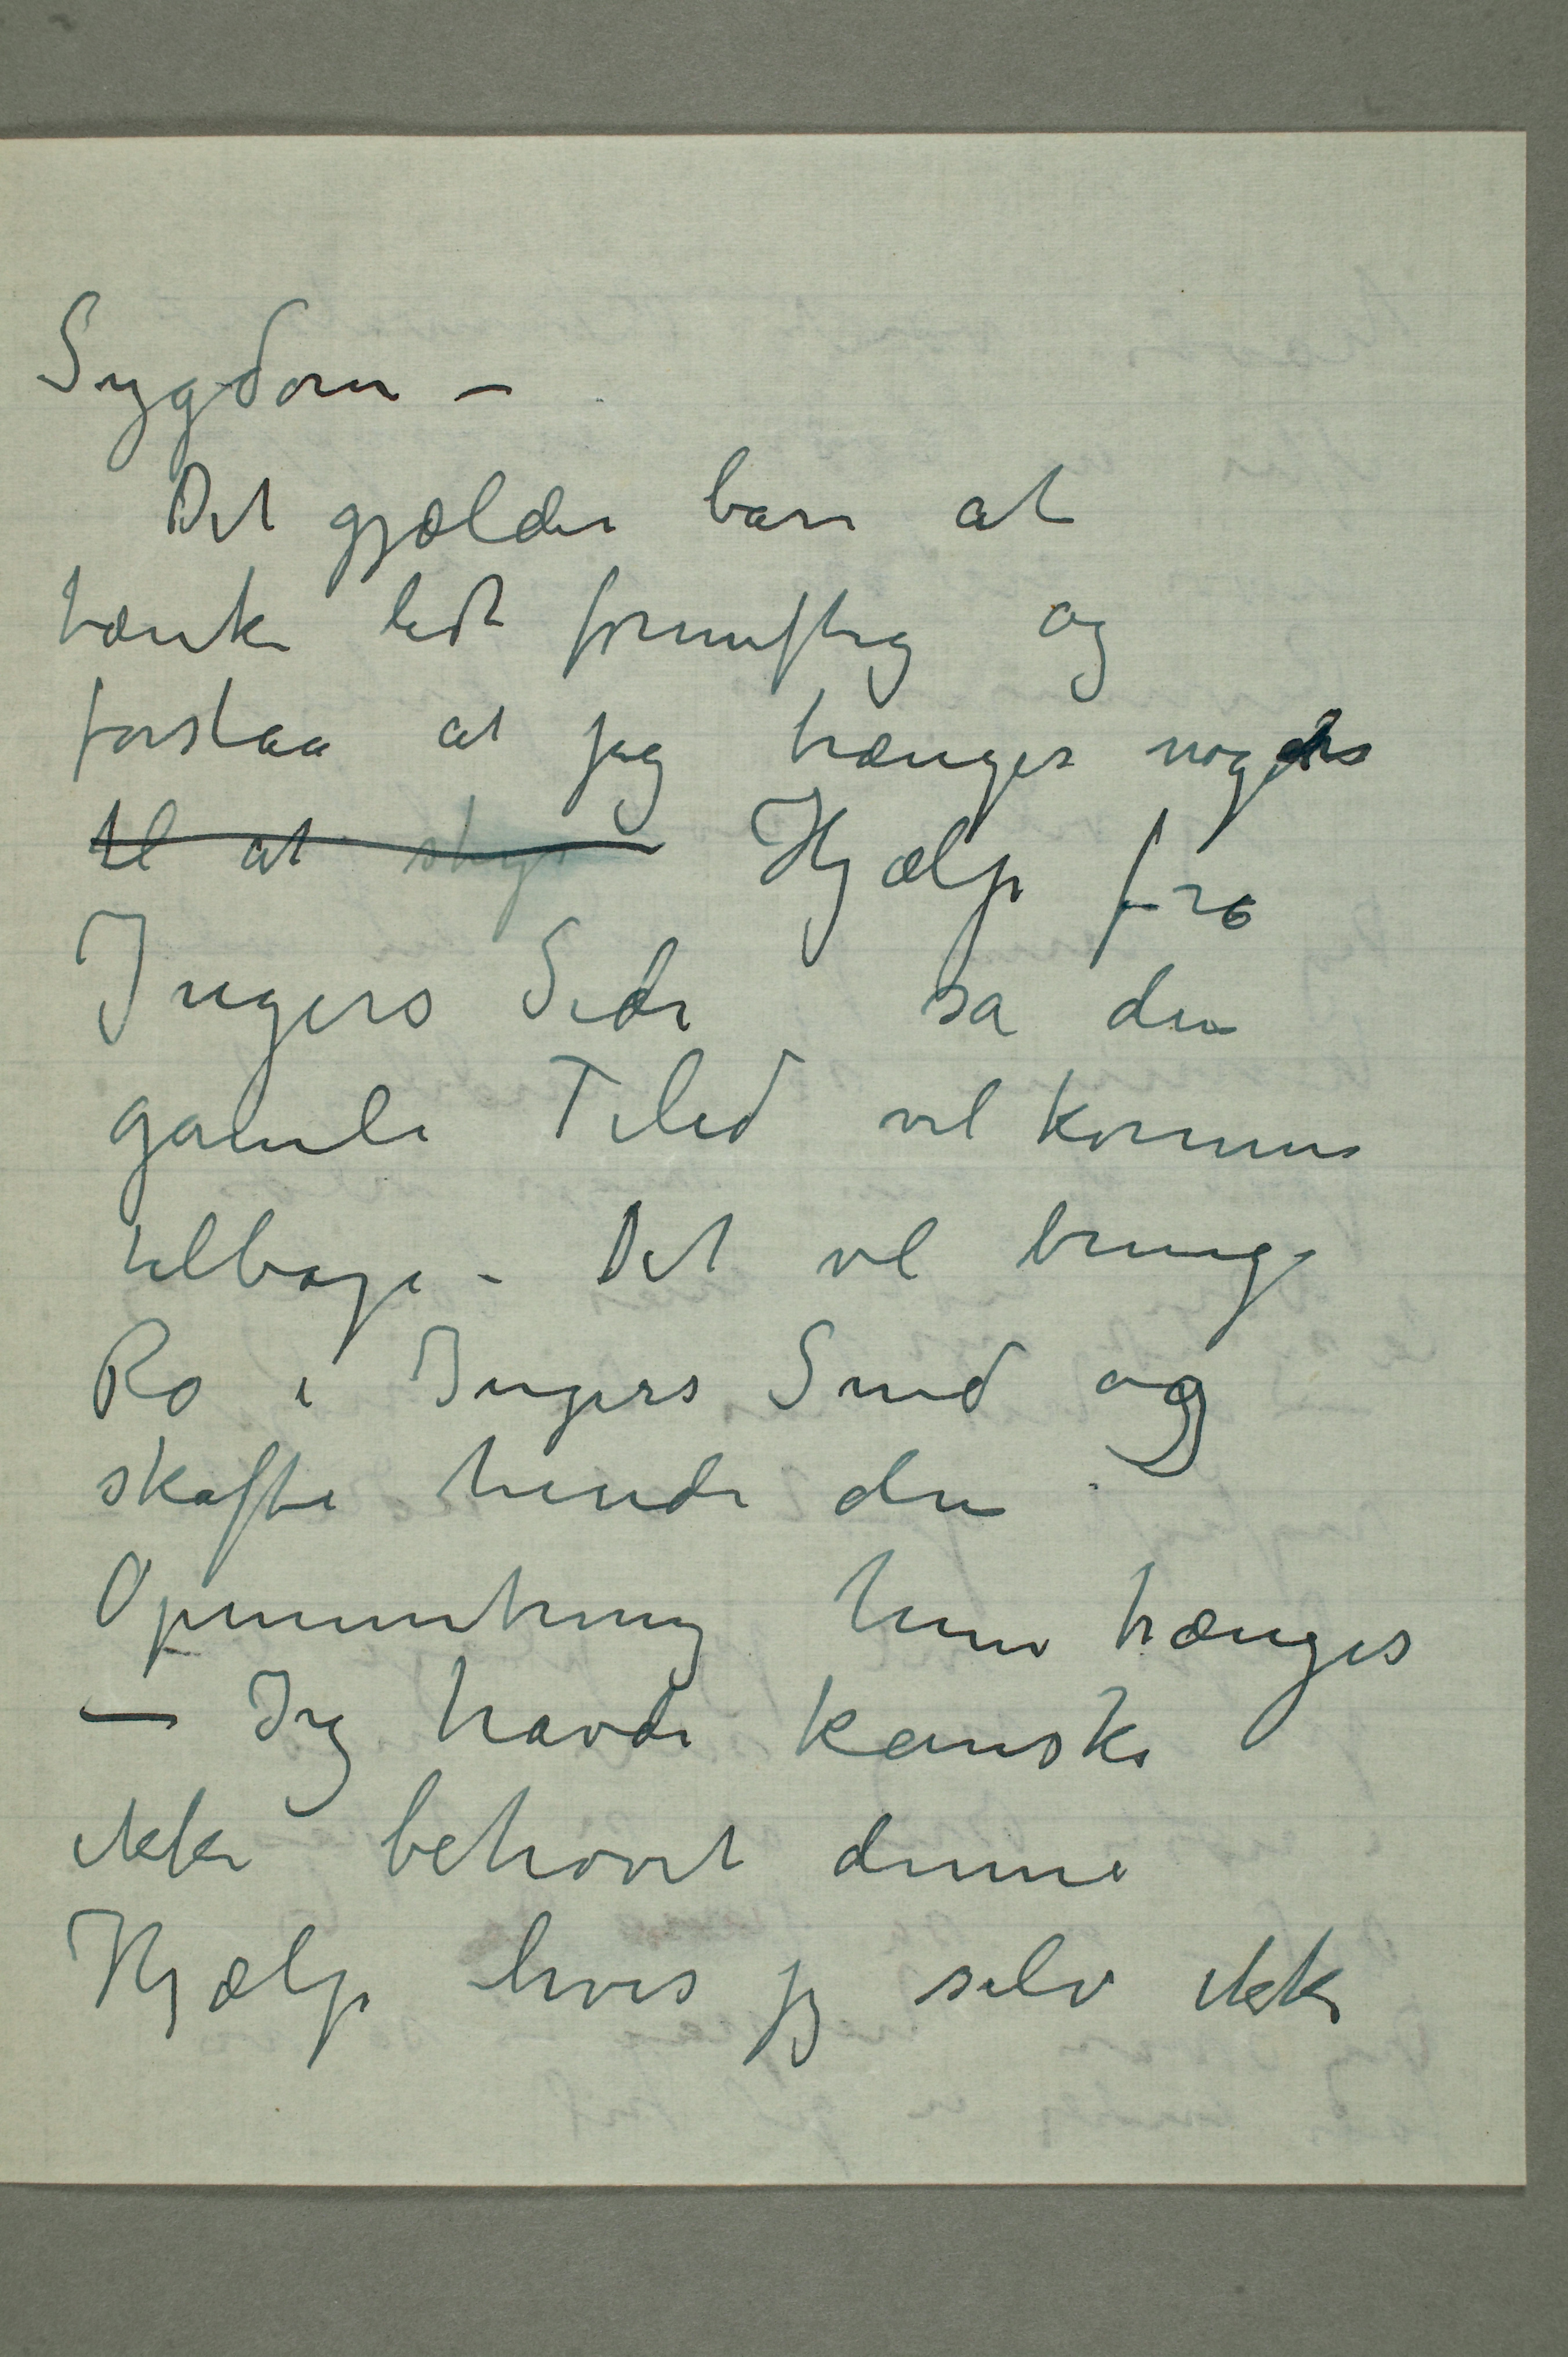 Sygdom –
Det gjælder bare at
tænke lidt fornuftig og
forstaa at jeg trænger nogen
til at styr Hjælp fra
Ingers Side sa den
gamle Tilid vil komme
tilbage – Det vil bringe
Ro i Ingers Sind og
skaffe hende den
Opmuntring hun trænger
– Jeg havde kanske
ikke behøvet denne
Hjælp hvis jeg selv ikke